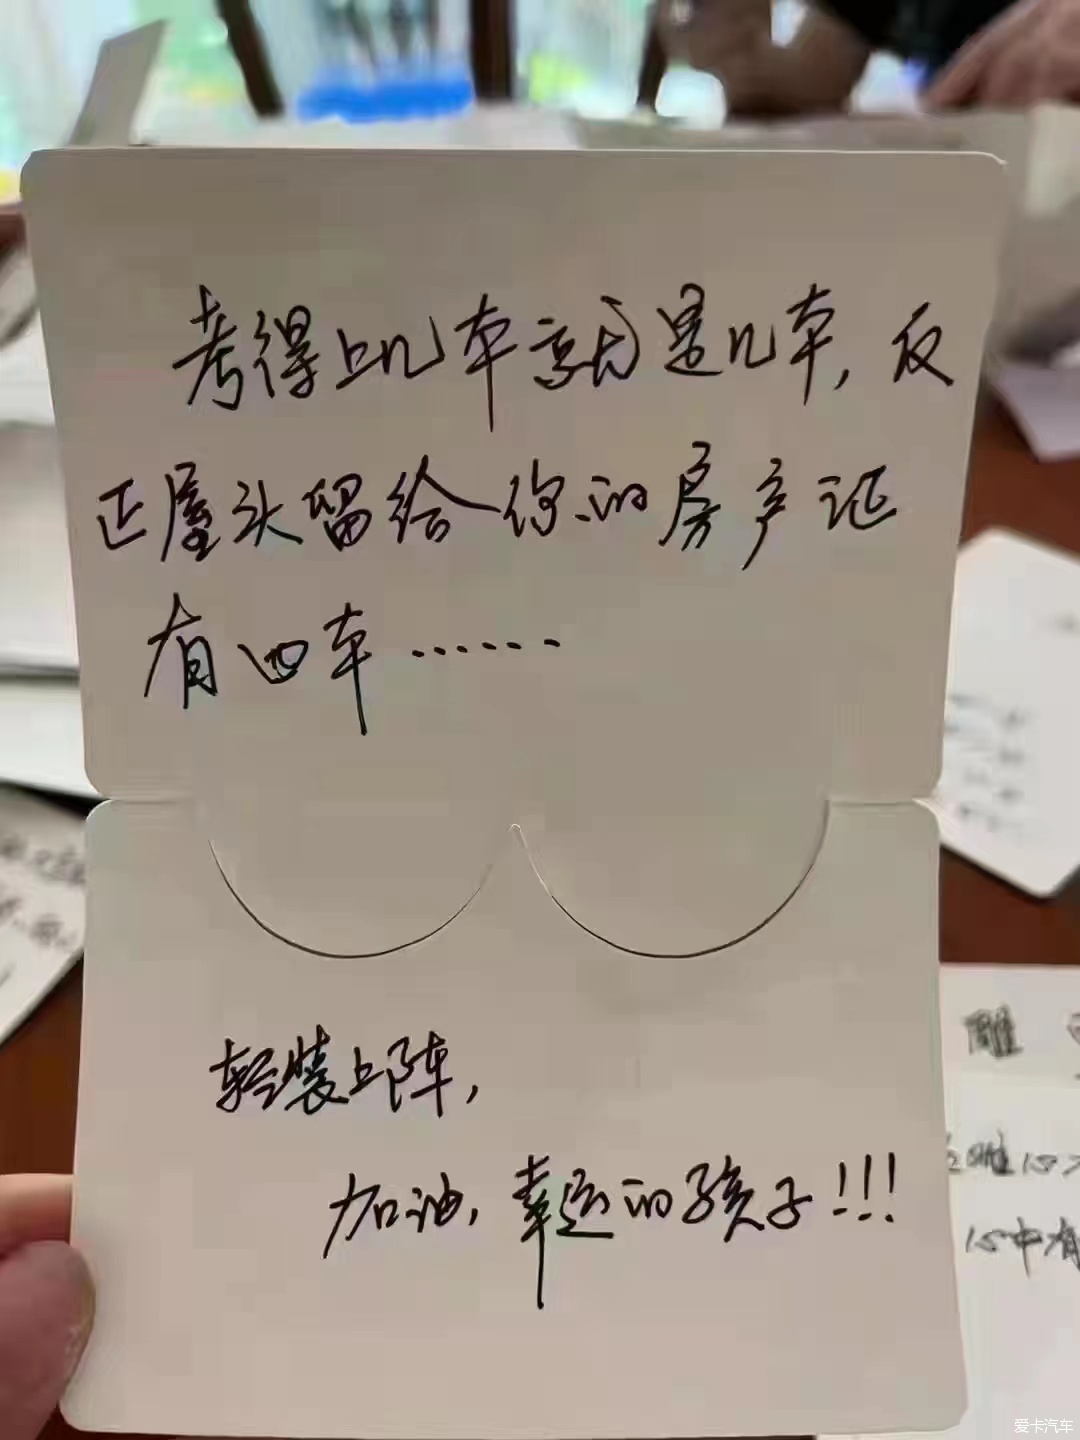 考得上几本就是几本，反
正屋头留给你的房产证
有四本……
轻装上阵，
加油，幸运的孩子！！！
雕
心中有
爱卡汽车